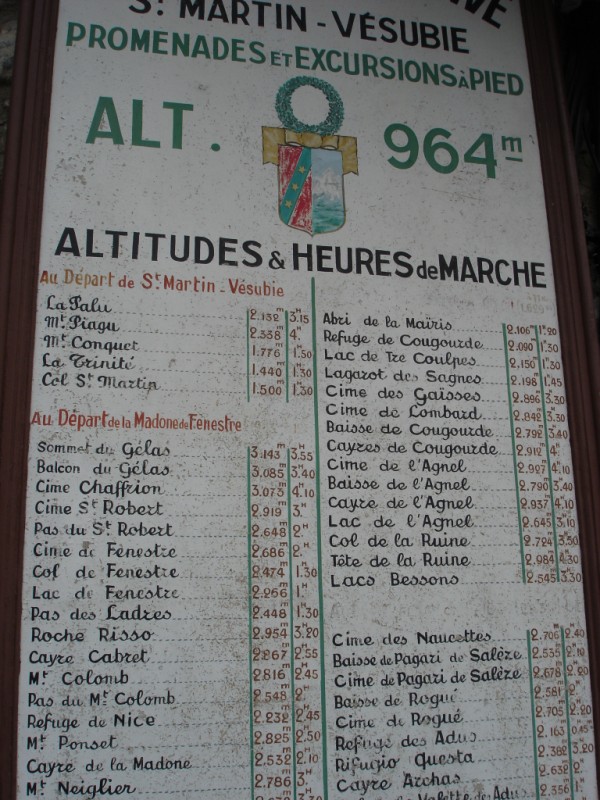 St MARTIN - VÉSUBIE
PROMENADES ET EXCURSIONS À PIED
ALT. 964m
ALTITUDES & HEURES de MARCHE
Au Départ de St Martin - Vésubie
La Palu 2.132m 3H15
Mt Piagu 2.338 4H
Mt Conquet 1.776 1H50
La Trinité 1.440 1H30
Col St Martin 1.500 1H30
Au Départ de la Madone de Fenestre
Sommet du Gélas 3.143m 3H55
Balcon du Gélas 3.085m 3H40
Cime Chaffrion 3.073m 4H10
Cime St Robert 2.919m 3H
Pas du St Robert 2.648m 2H
Cime de Fenestre 2.686m 2H
Col de Fenestre 2.474m 1H30
Lac de Fenestre 2.266m 1H
Pas des Ladres 2.448m 1H30
Roche Risso 2.954m 3H20
Cayre Cabret 2.867m 2H55
Mt Colomb 2.816m 2H45
Pas du Mt Colomb 2.548m 2H
Refuge de Nice 2.232m 2H45
Mt Ponset 2.825m 2H50
Cayre de la Madone 2.532m 2H10
Mt Neiglier 2.786m 3H
Abri de la Maïris 2.106m 1H20
Refuge de Cougourde 2.090m 1H30
Lac de Tre Coulpes 2.150m 1H30
Lagarot des Sagnes 2.198m 1H45
Cime des Gaisses 2.896m 3H30
Cime de Lombard 2.842m 3H30
Baisse de Cougourde 2.792m 3H40
Cayres de Cougourde 2.912m 4H
Cime de l'Agnel 2.927m 4H10
Baisse de l'Agnel 2.790m 3H40
Cayre de l'Agnel 2.937m 4H10
Lac de l'Agnel 2.645m 3H10
Col de la Ruine 2.724m 3H50
Tête de la Ruine 2.984m 4H30
Lacs Bessons 2.545m 3H30
Cime des Naucettes 2.706m 2H40
Baisse de Pagari de Salèze 2.535m 2H10
Cime de Pagari de Salèze 2.678m 2H20
Baisse de Rogué 2.581m 2H
Cime de Rogué 2.705m 2H20
Refuge des Adus 2.163m 0H45
Rifugio Questa 2.382m 3H20
Cayre Archas 2.632m 2H
Valette des Adus 2.356m 1H